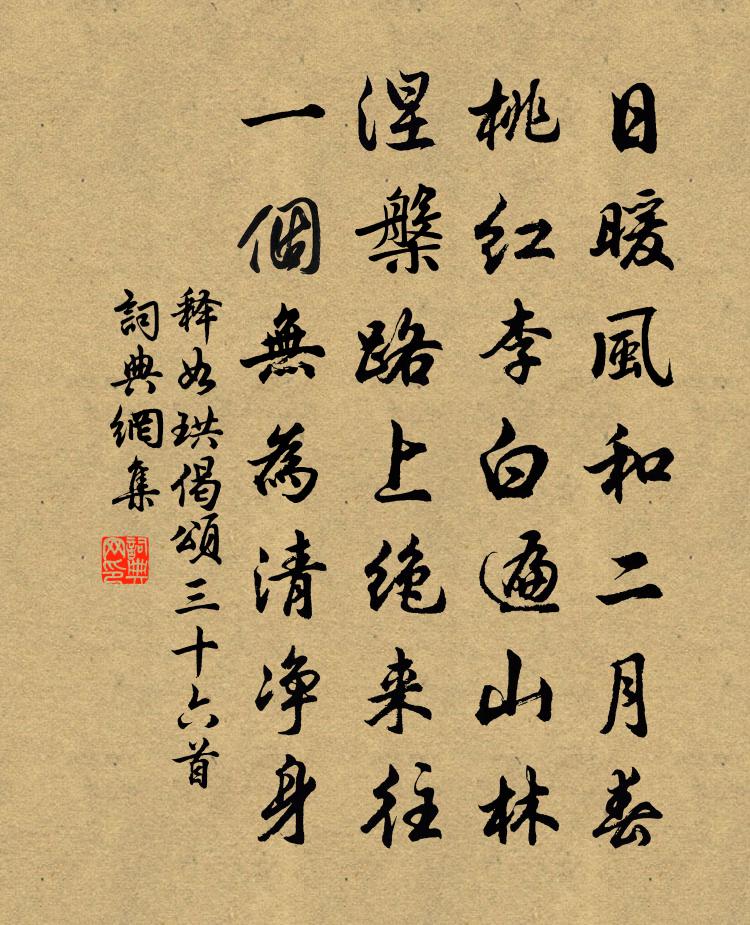 日暖風和二月春
桃紅李白遍山林
涅槃路上绝来往
一個無為清净身
释如珙偈頌三十六首
詞典網集
詞典
网印